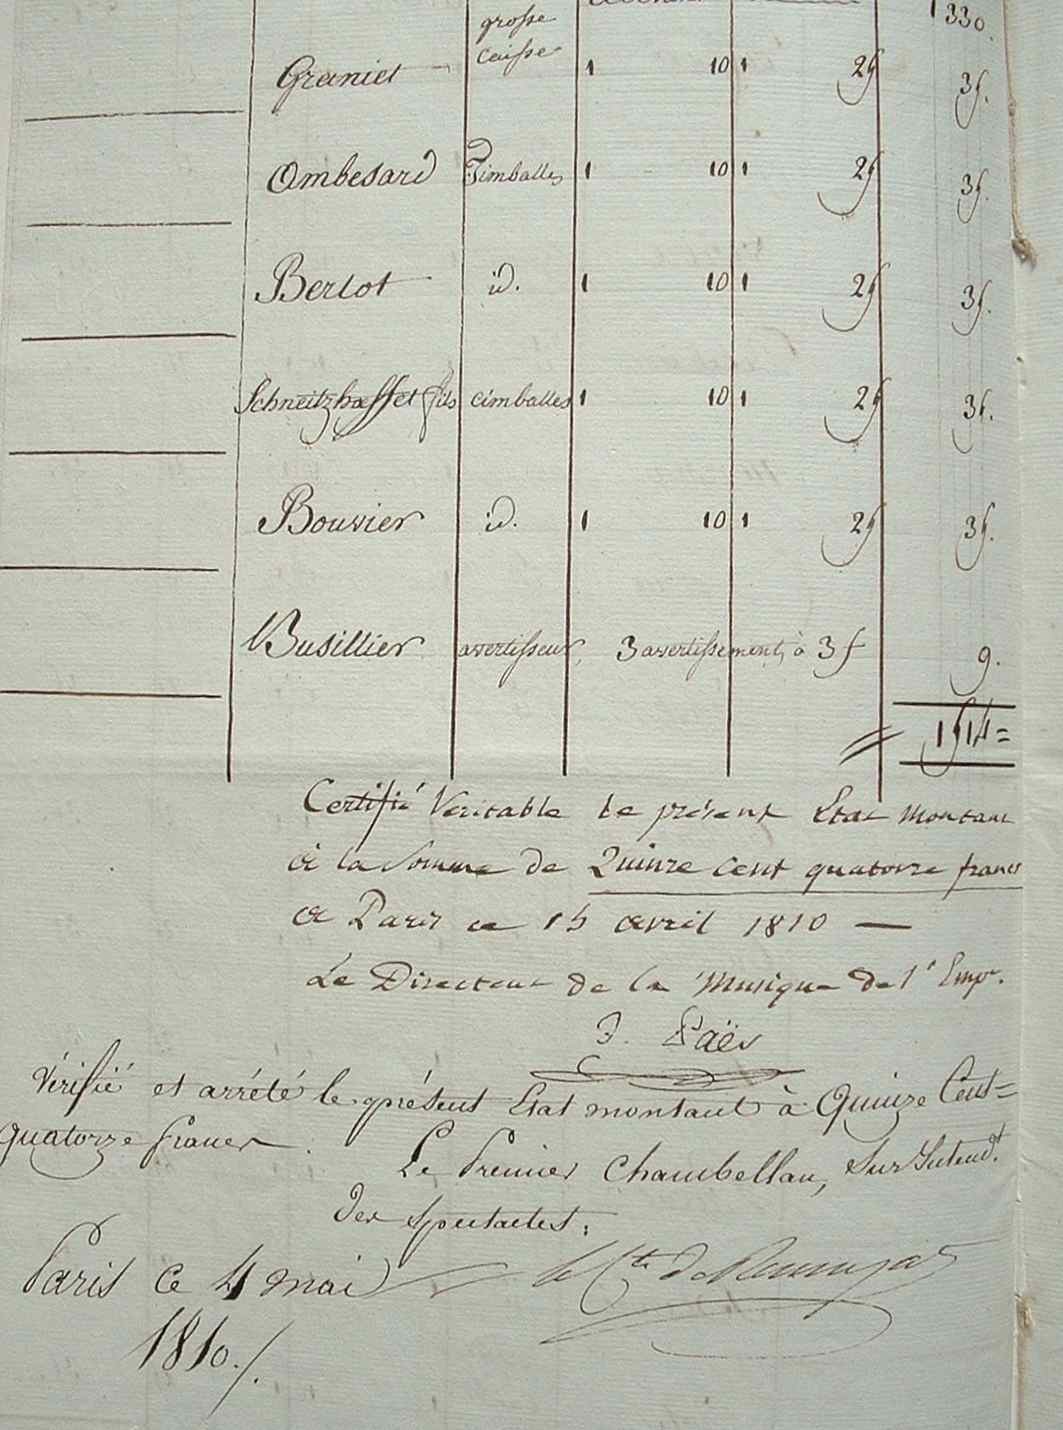 1330.
grosse
caisse
Graniet 1 10 1 25 35.
Ombesard Timballes 1 10 1 25 35.
Berlot id. 1 10 1 25 35.
Schneitzhoeffet fils cimballes 1 10 1 25 35.
Bouvier id. 1 10 1 25 35.
Busillier avertisseur, 3 avertissement, à 3 f 9.
1514=
Certifié Veritable le présent Etat montant
à la Somme de Quinze cent quatorze francs
à Paris ce 15 avril 1810 —
Le Directeur de la Musique de l'Empr.
Paër
Vérifié et arrêté le présent Etat montant à Quinze Cent=
quatorze francs
Le Premier Chambellan, Sur Intendt.
des Spectacles.
Paris ce 4 mai le Cte de Remusat
1810./.